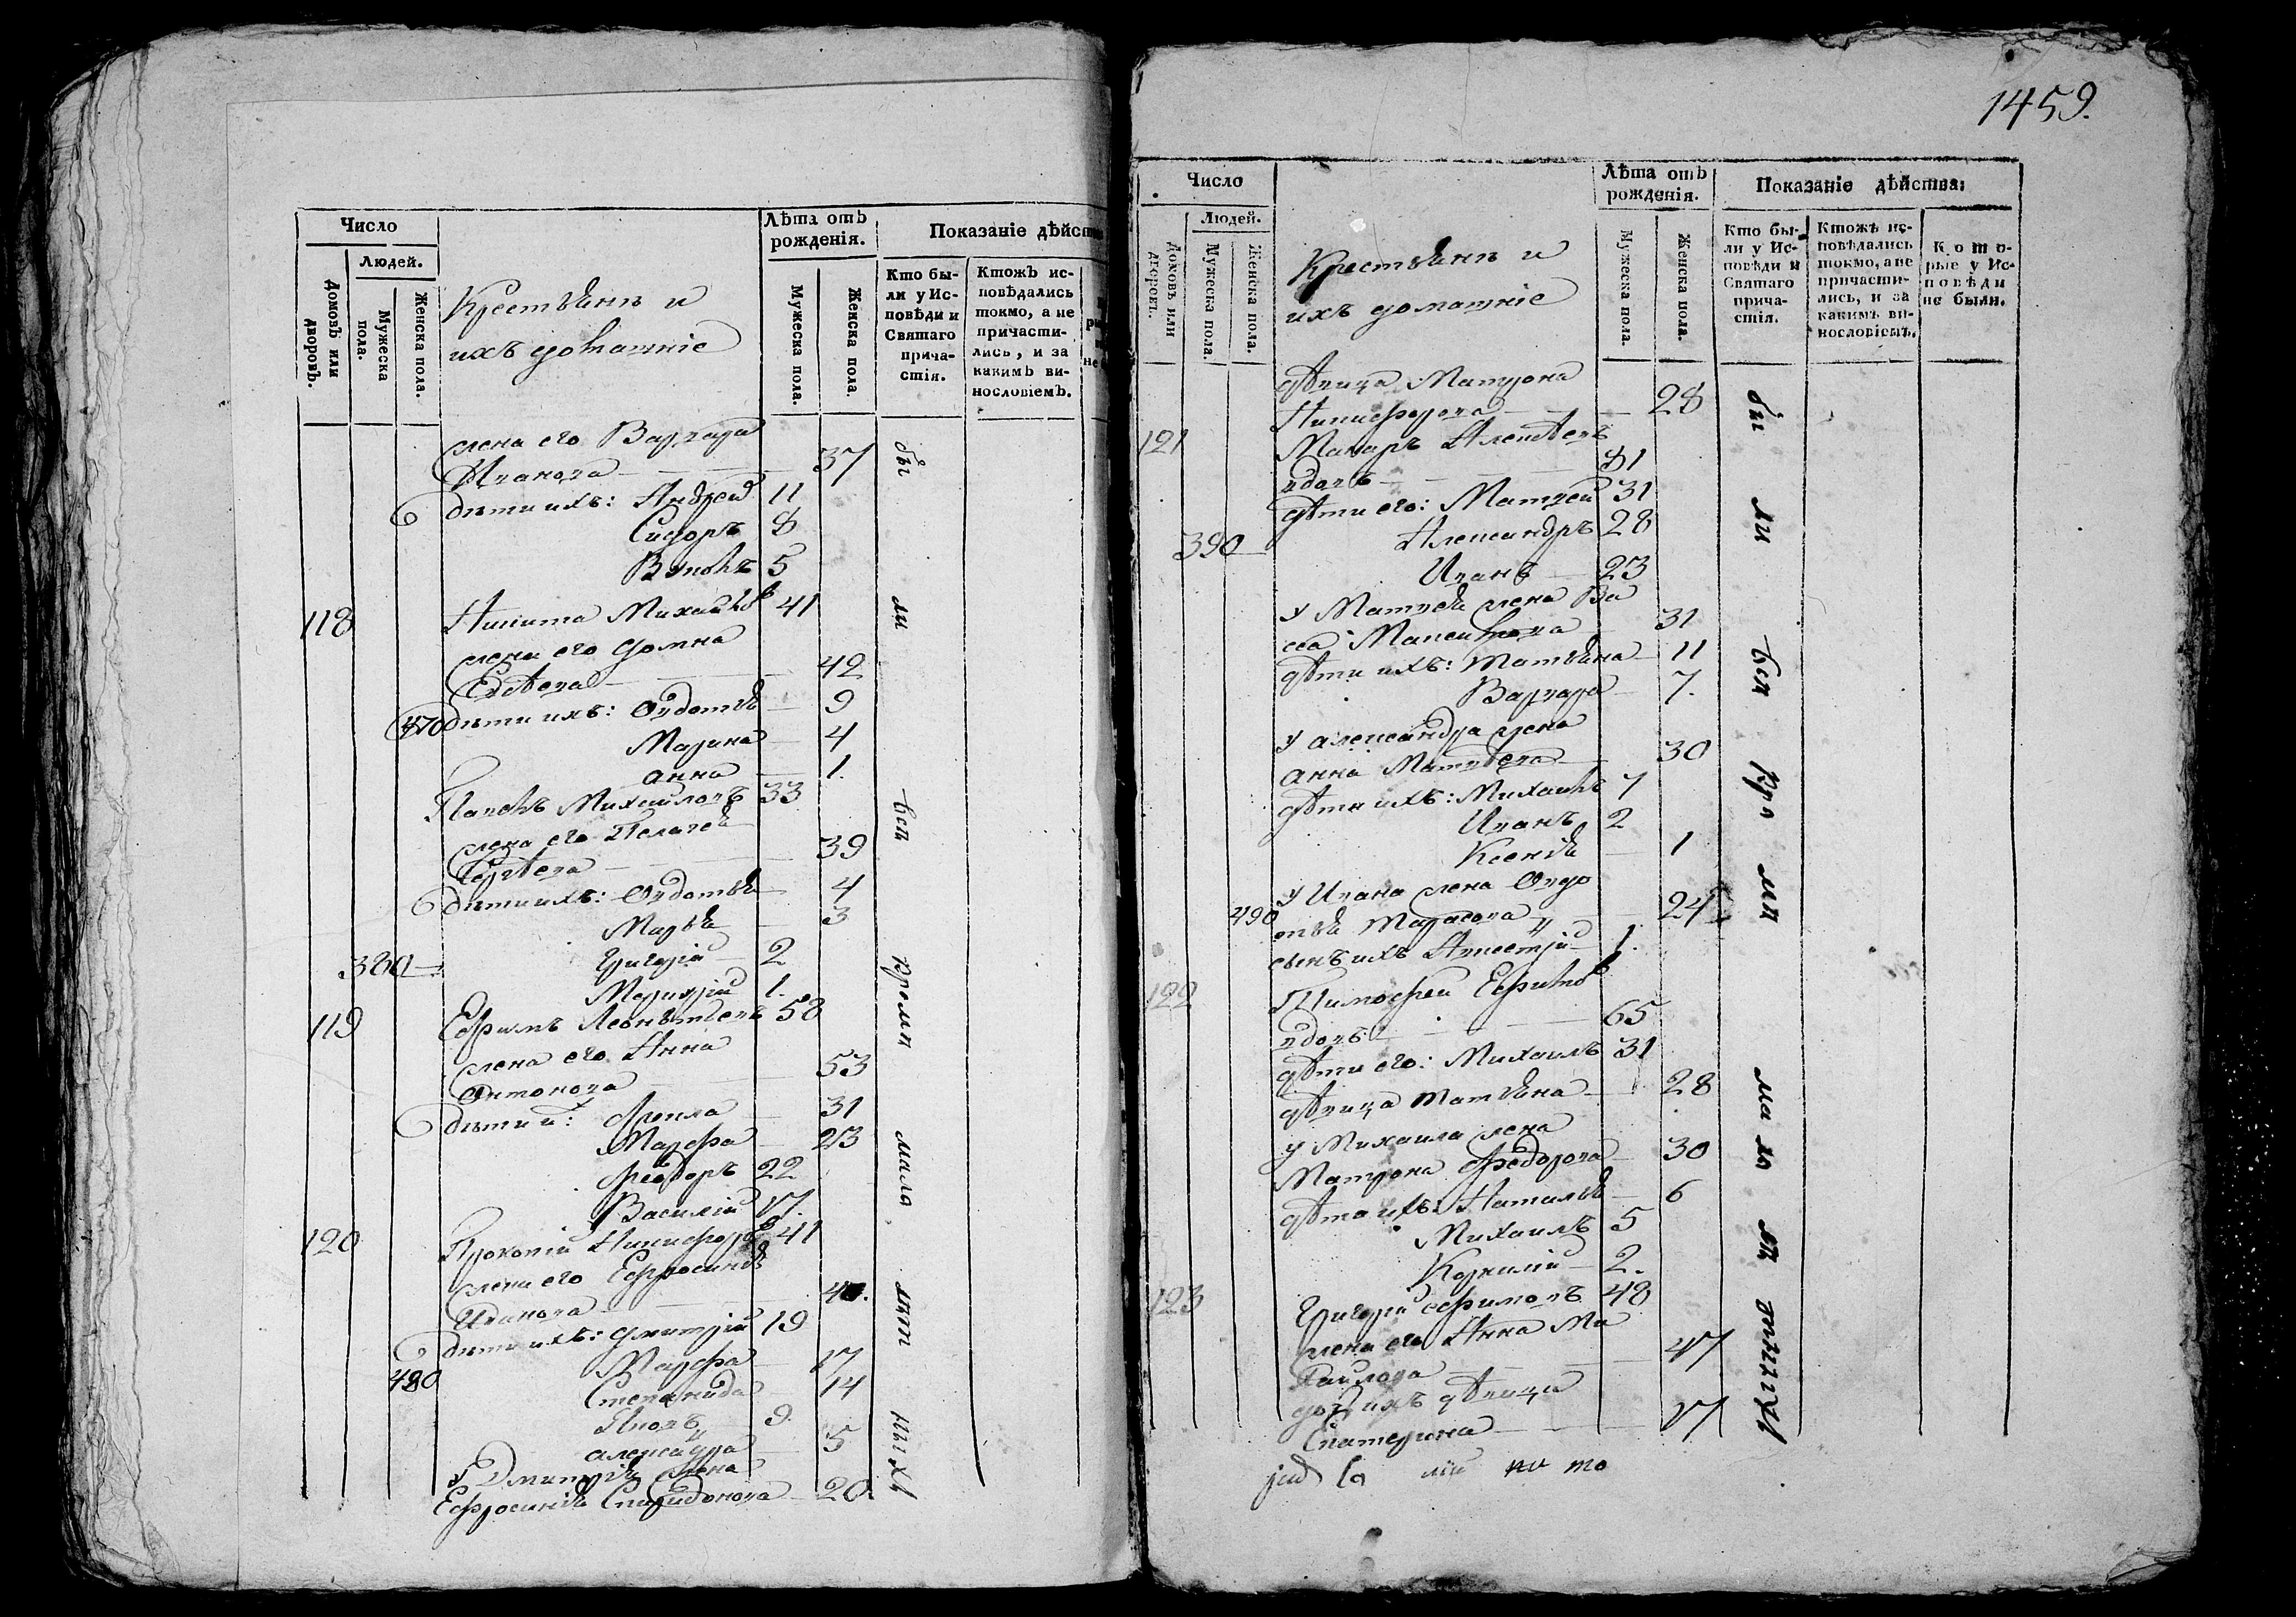 Число
Людей.
Домовъ или дворовъ.
Мужеска пола.
Женска пола.
Крестьянъ и
ихъ домашніе
Лѣта отъ рожденія.
Мужеска пола.
Женска пола.
Показаніе дѣйст
Кто были у Исповѣди и Святаго причастія.
Ктожъ исповѣдались токмо, а не причастились, и за какимъ винословіемъ.
жена его Варвара
Иванова 37
дѣти ихъ: Андрей 11
Сидоръ 8
5
118 Никита Михайловъ 41
жена его Домна
42
470 дѣти ихъ: Авдотья 9
Марина 4
Анна 1.
Павелъ Михайловъ 33
жена его Пелагея
Сергѣева 39
дѣти ихъ: Авдотья 4
Марья 3
380 Григорій 2
1.
119 Ефимъ Леонтьевъ 58
жена его Анна
Антонова 53
дѣти и: Фекла 31
Марфа 23
Феодоръ 22
Василій 17.
120 Прокопій Никифоровъ 41
жена его Ефросинья
Иванова
дѣти ихъ: Дмитрій 19
Марфа 17
480 Степанида 14
Яковъ 9.
Александра 5
У Дмитрія жена
Ефросинья Спиридонова 20.
бы ли всѣ кромѣ мало лѣт ныхъ
1459.
Число
Людей.
Домовъ или дворовъ.
Мужеска пола.
Женска пола.
Крестьянъ и
ихъ домашніе
Лѣта отъ рожденія.
Мужеска пола.
Женска пола.
Показаніе дѣйства:
Кто были у Исповѣди и Святаго причастія.
Ктожъ исповѣдались токмо, а не причастились, и за какимъ винословіемъ.
Которые у Исповѣди не были.
дѣвица Матрона
Никифорова 28
121 Макаръ Алексѣевъ
вдовъ
дѣти его: Матвей 31
390 Александръ 28
Иванъ 23
у Матвея жена Ва
сса Максимова 31
дѣти ихъ: Татьяна 11
Варвара 7.
у Александра жена
Анна Матвѣева 30
дѣти ихъ: Михаилъ 7
Иванъ 2
Ксенія 1
у Ивана жена Овдо
490 тья Тарасова 24
сынъ ихъ 1.
122 Тимофей Ефимовъ
вдовъ 65
дѣти его: Михаилъ 31
дѣвица Татьяна 28
у Михаила жена
Матрона Федорова 30
дѣти ихъ: Наталья 6
Михаилъ 5
Корнилій 2.
123 Григорій Ефимовъ 48
жена его Анна Ми
хайлова 47
дочь ихъ дѣвица
Екатерина 17
рей Ва лій по то
бы ли всѣ кро мѣ ма ло лѣ тныхъ